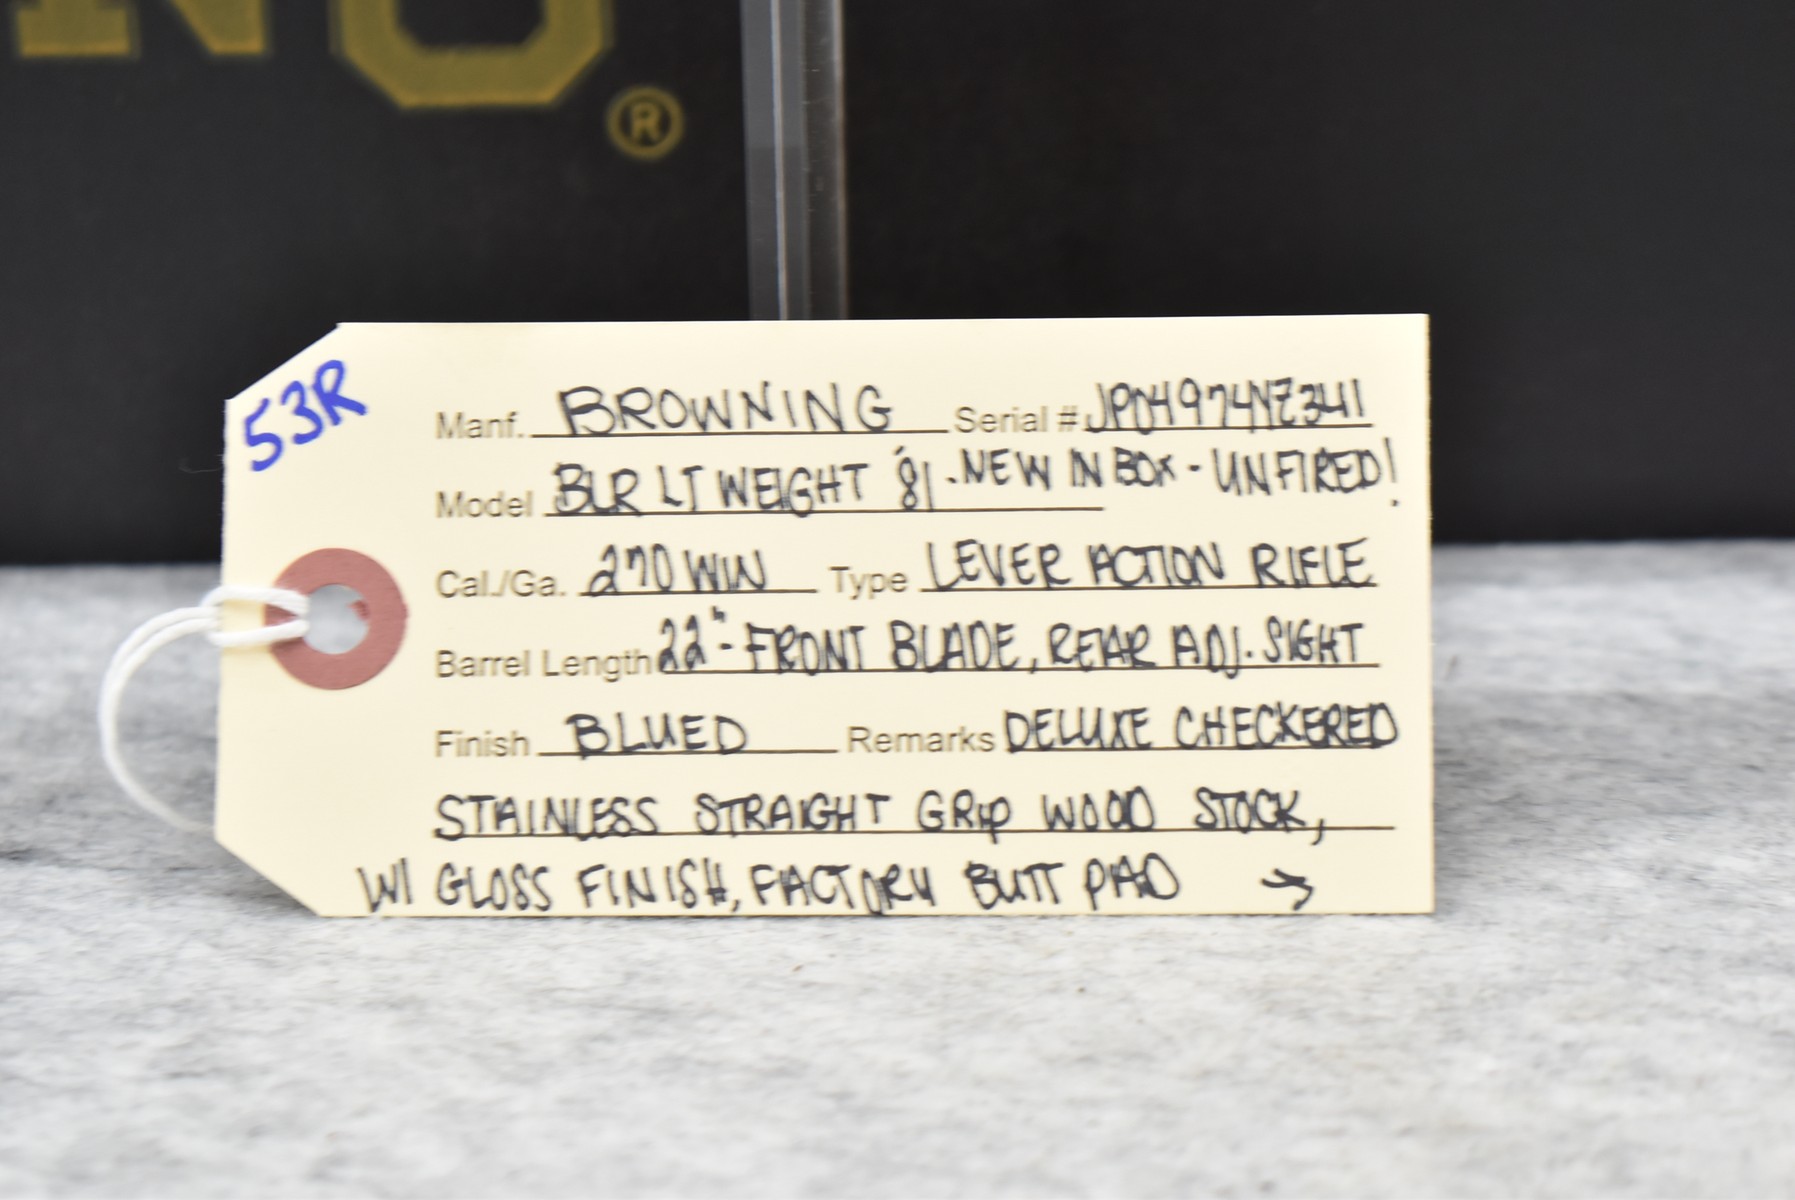 NG®
53R
Manf. BROWNING Serial # JP04974YZ341
Model BLR LT WEIGHT '81 - NEW IN BOX - UNFIRED!
Cal./Ga. 270 WIN Type LEVER ACTION RIFLE
Barrel Length 22" - FRONT BLADE, REAR ADJ. SIGHT
Finish BLUED Remarks DELUXE CHECKERED
STAINLESS STRAIGHT GRIP WOOD STOCK,
W/ GLOSS FINISH, FACTORY BUTT PAD →